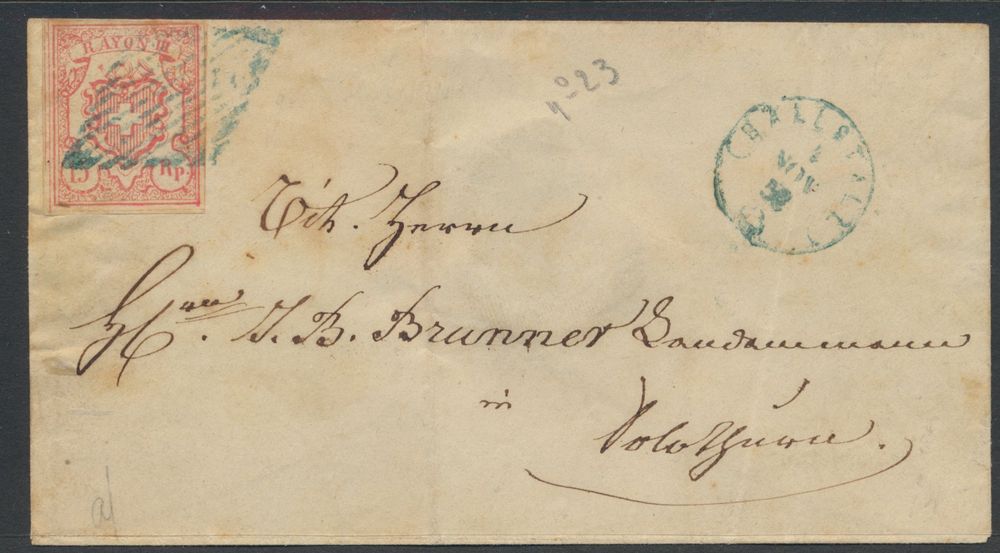 RAYON III
15 Rp.
No 23
NOV
Tit. Herrn
Hrn. J. B. Brunner Landammann
in
Solothurn.
a/